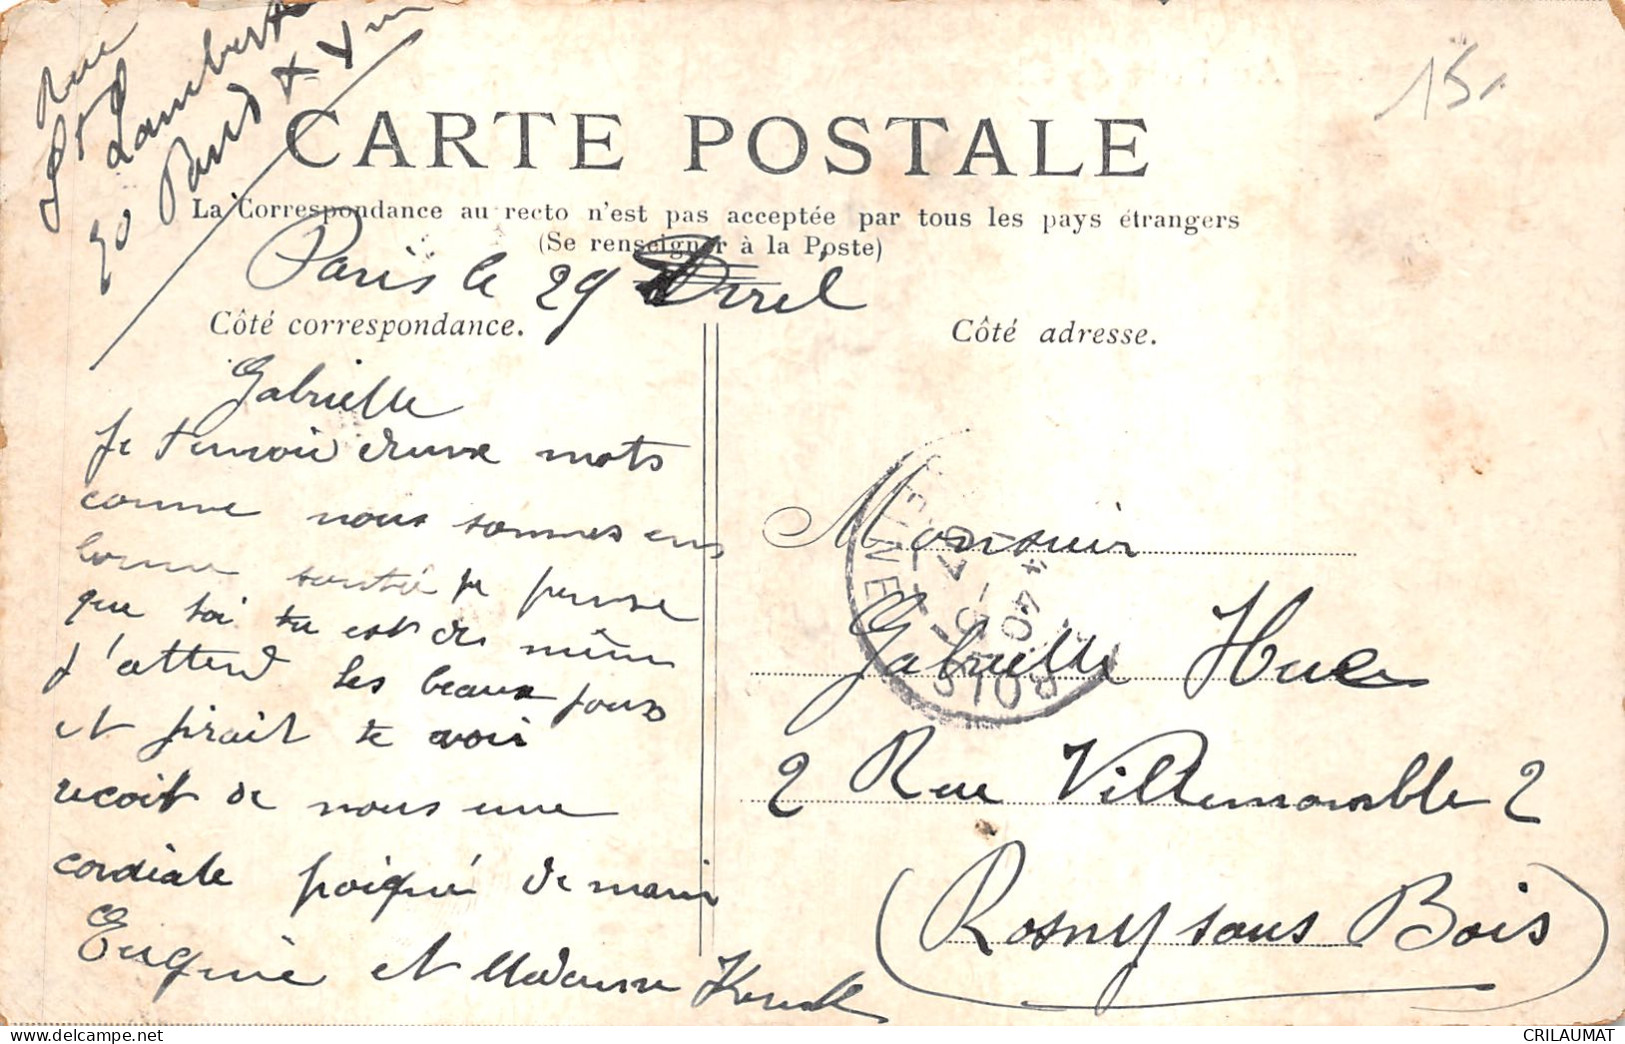 Rue
St Lambert
50 Paris XV
15
CARTE POSTALE
La Correspondance au recto n'est pas acceptée par tous les pays étrangers
(Se renseigner à la Poste)
Paris le 29 Avril
Côté correspondance.
Côté adresse.
Gabrielle
Je t'envoie deux mots
comme nous sommes en
bonne santé je pense
que toi tu est de même
j'attend les beaux jours
et pirait te voir
recoit de nous une
cordiale poigné de main
Eugénie et Madame
Monsuir
Gabrielle Hue
2 Rue Villemomble 2
(Rosny sous Bois)
EINE
4 40
7 - 5
BOIS
CRILAUMAT